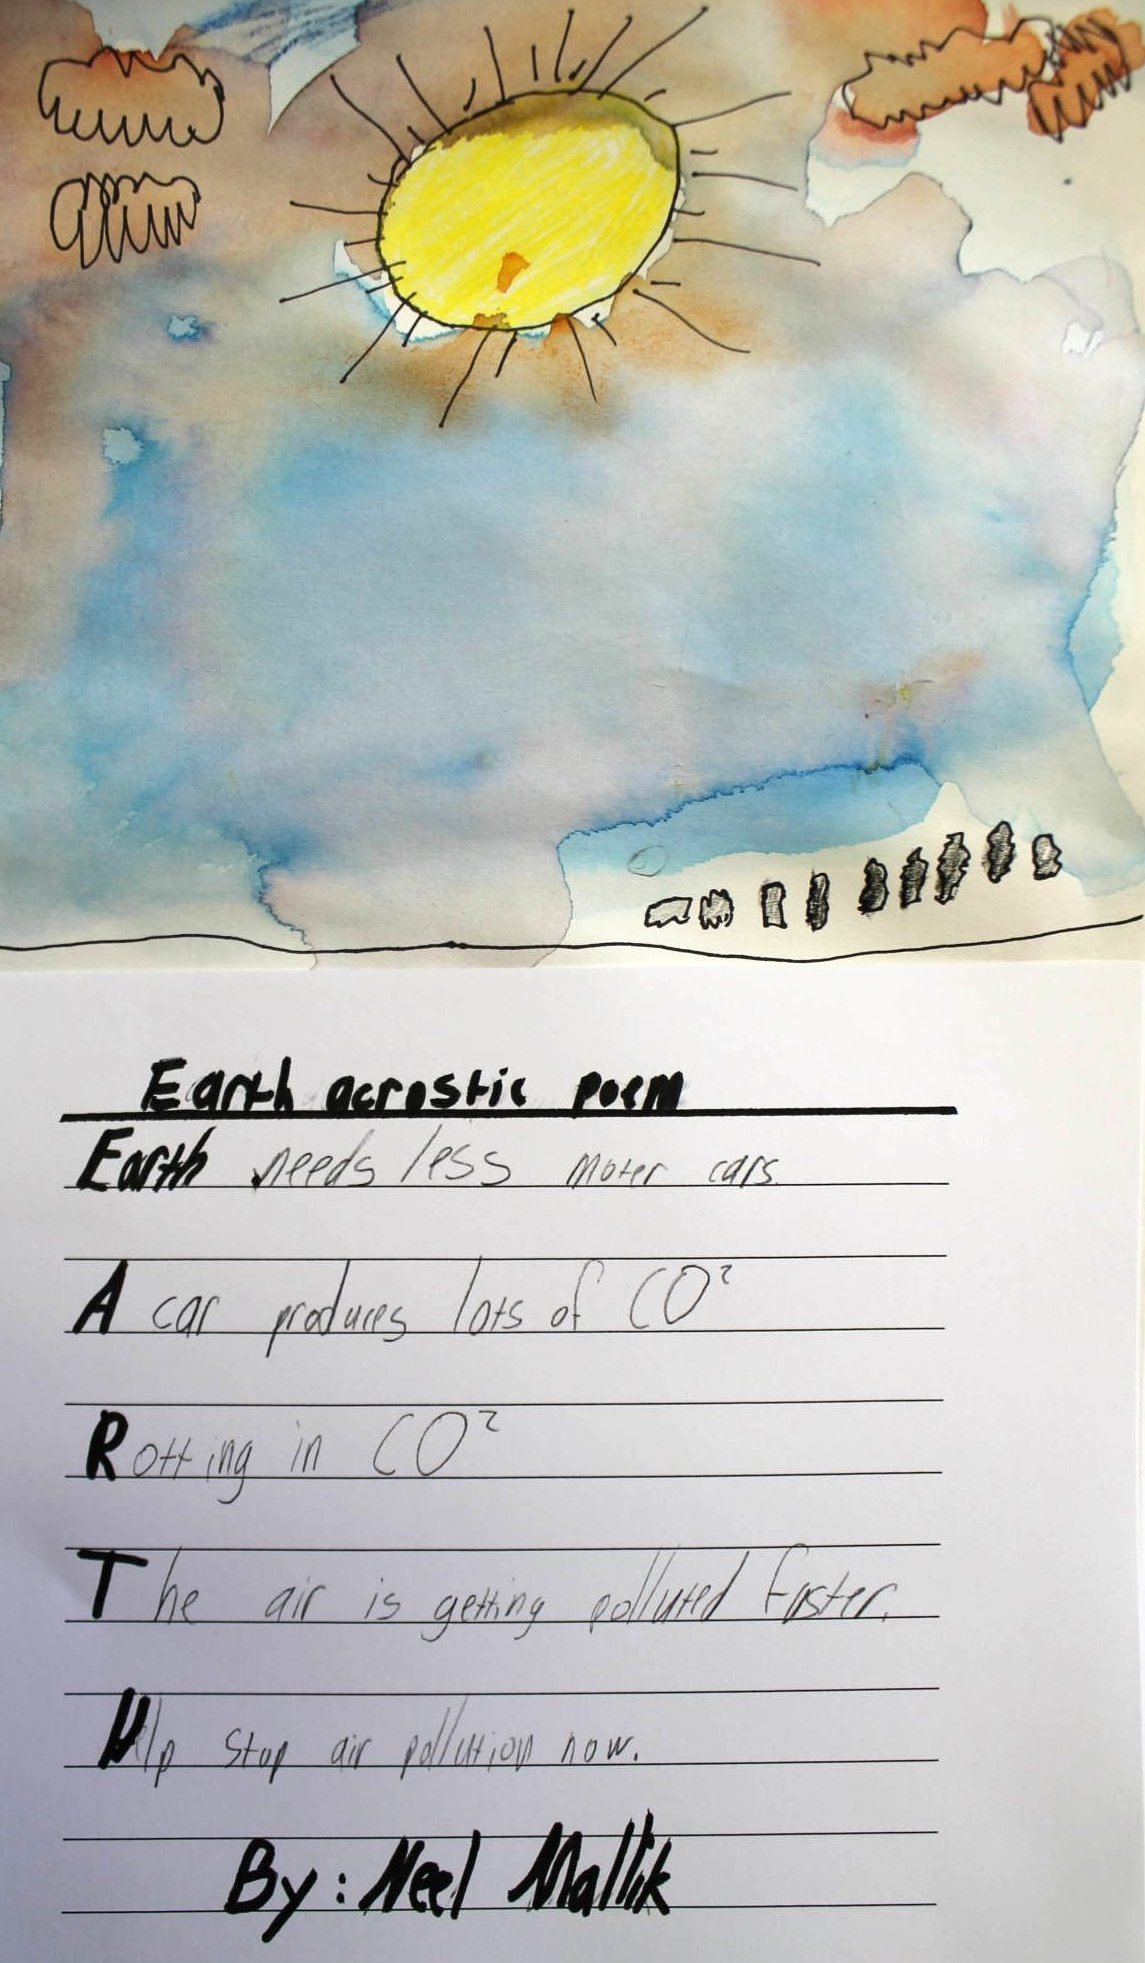 Earth acrostic poem
Earth needs less moter cars.
A car produces lots of CO²
Rotting in CO²
The air is getting polluted faster.
Help stop air pollution now.
By: Neel Mallik